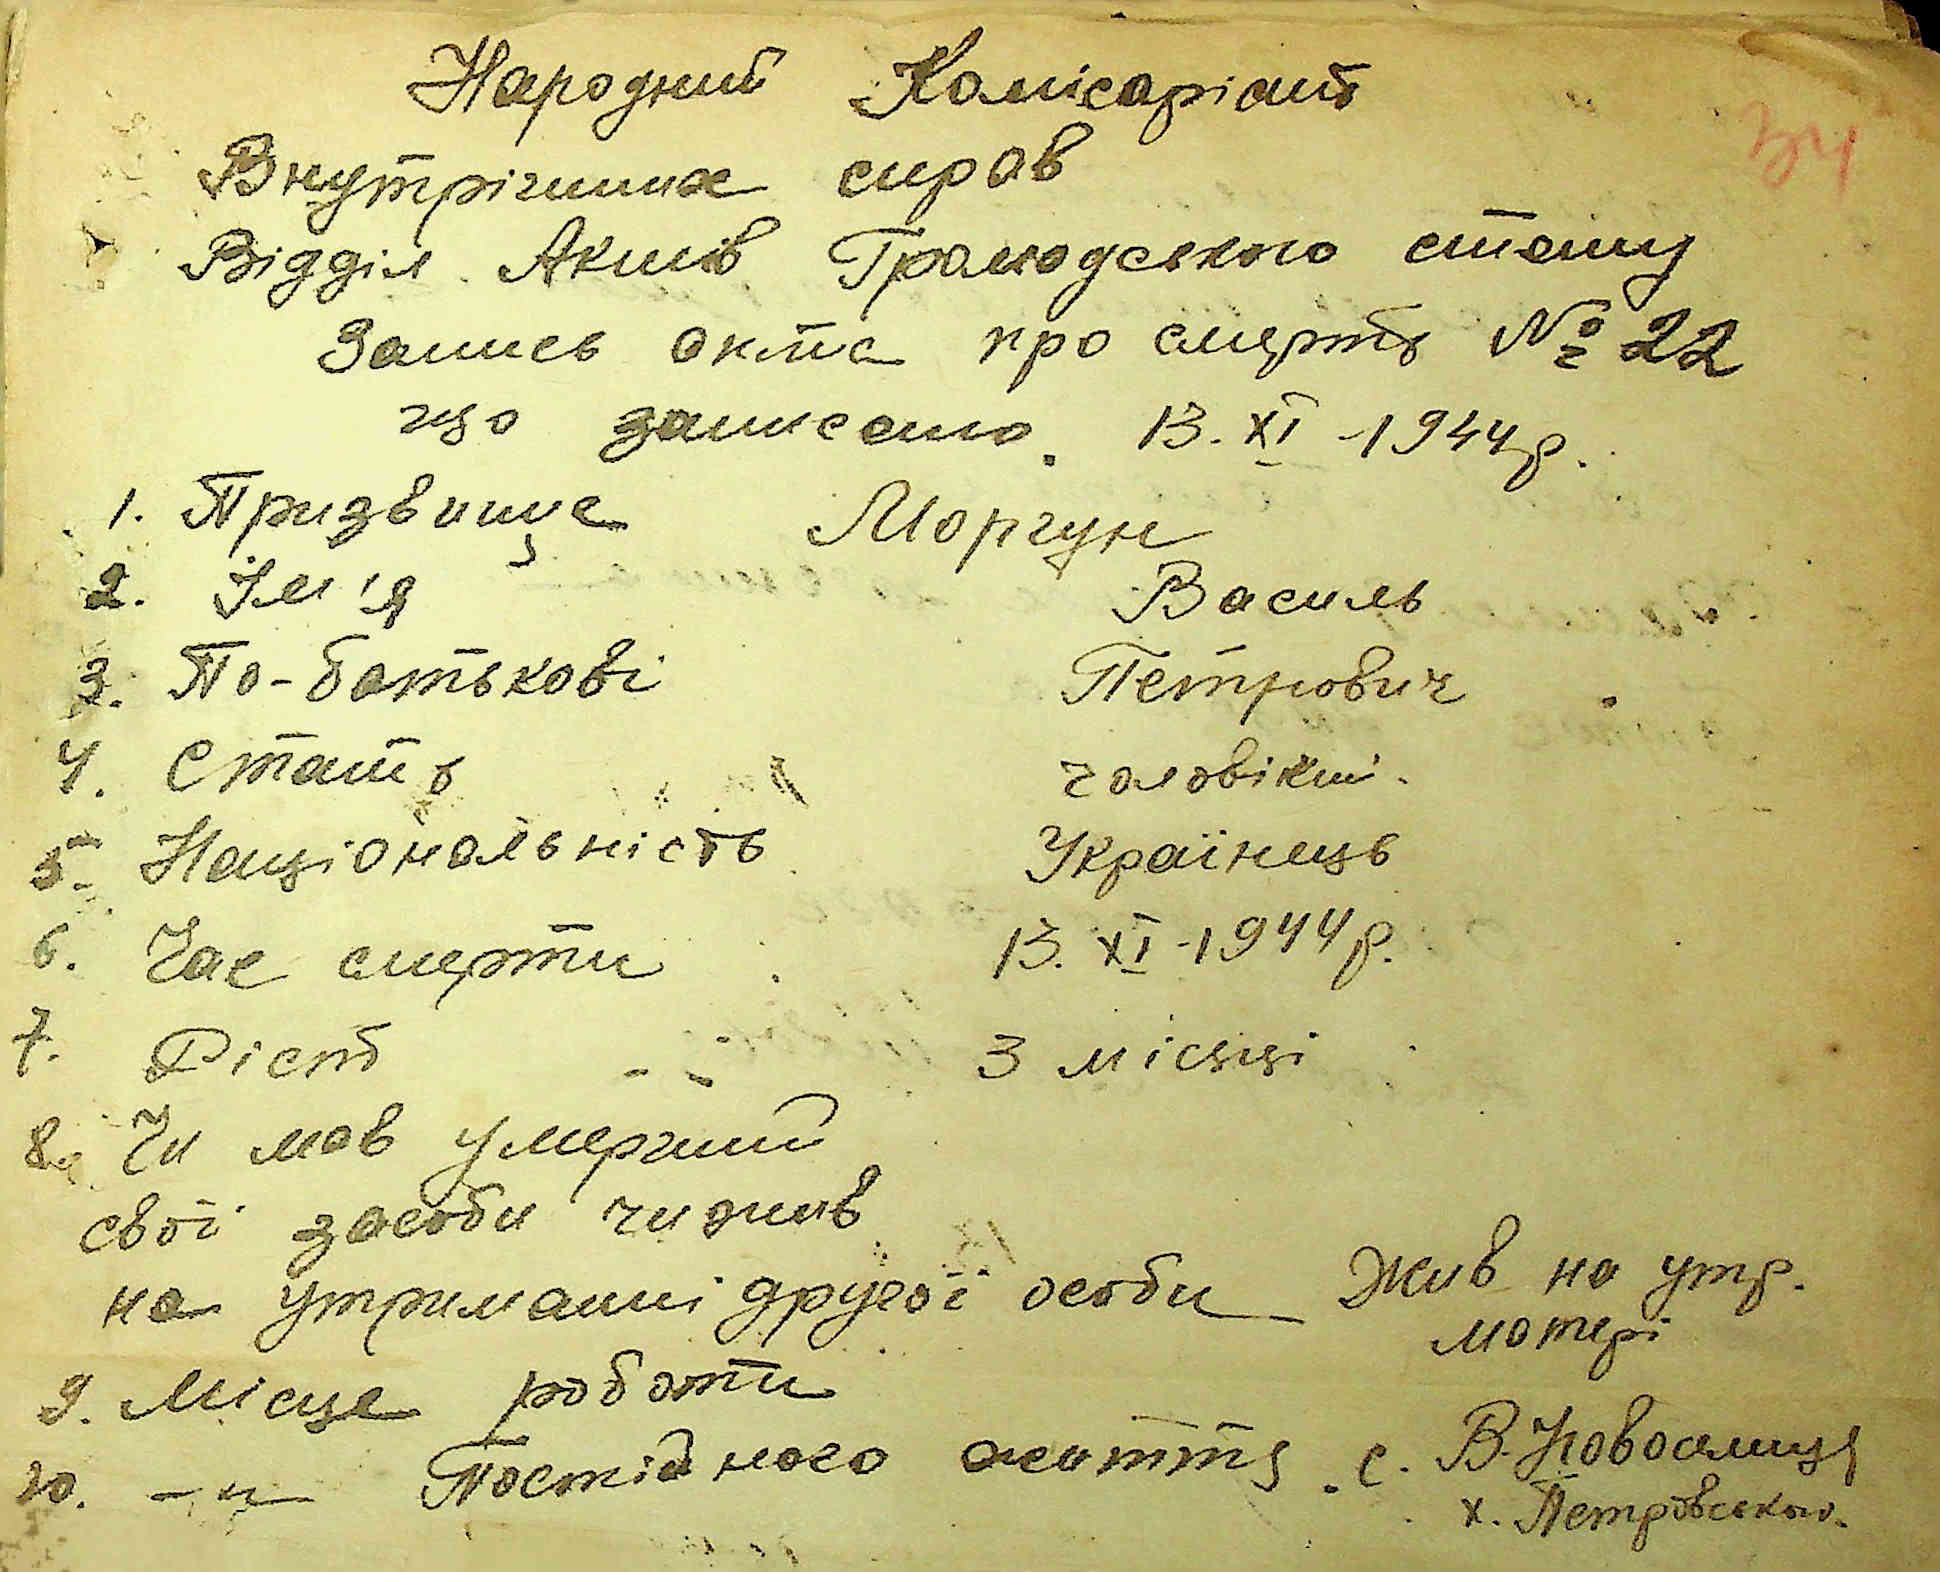 Народний Комісаріат
34
Внутрішних справ
Відділ Актів Громадського стану
Запись акта про смерть № 22
що записано. 13. XI -1944р.
1. Призвище Моргун
2. Ім'я Василь
3. По-батькові Петрович
4. Стать чоловічий.
5. Національність Українець
6. Час смерти 13. XI -1944р.
7. Рість 3 місяці
8. Чи мав умерший
свої засоби чи жив
на утриманні другої особи Жив на утр.
матері
9. Місце роботи
10. -"- Постійного життя. с. В. Новоселиця
х. Петровського.